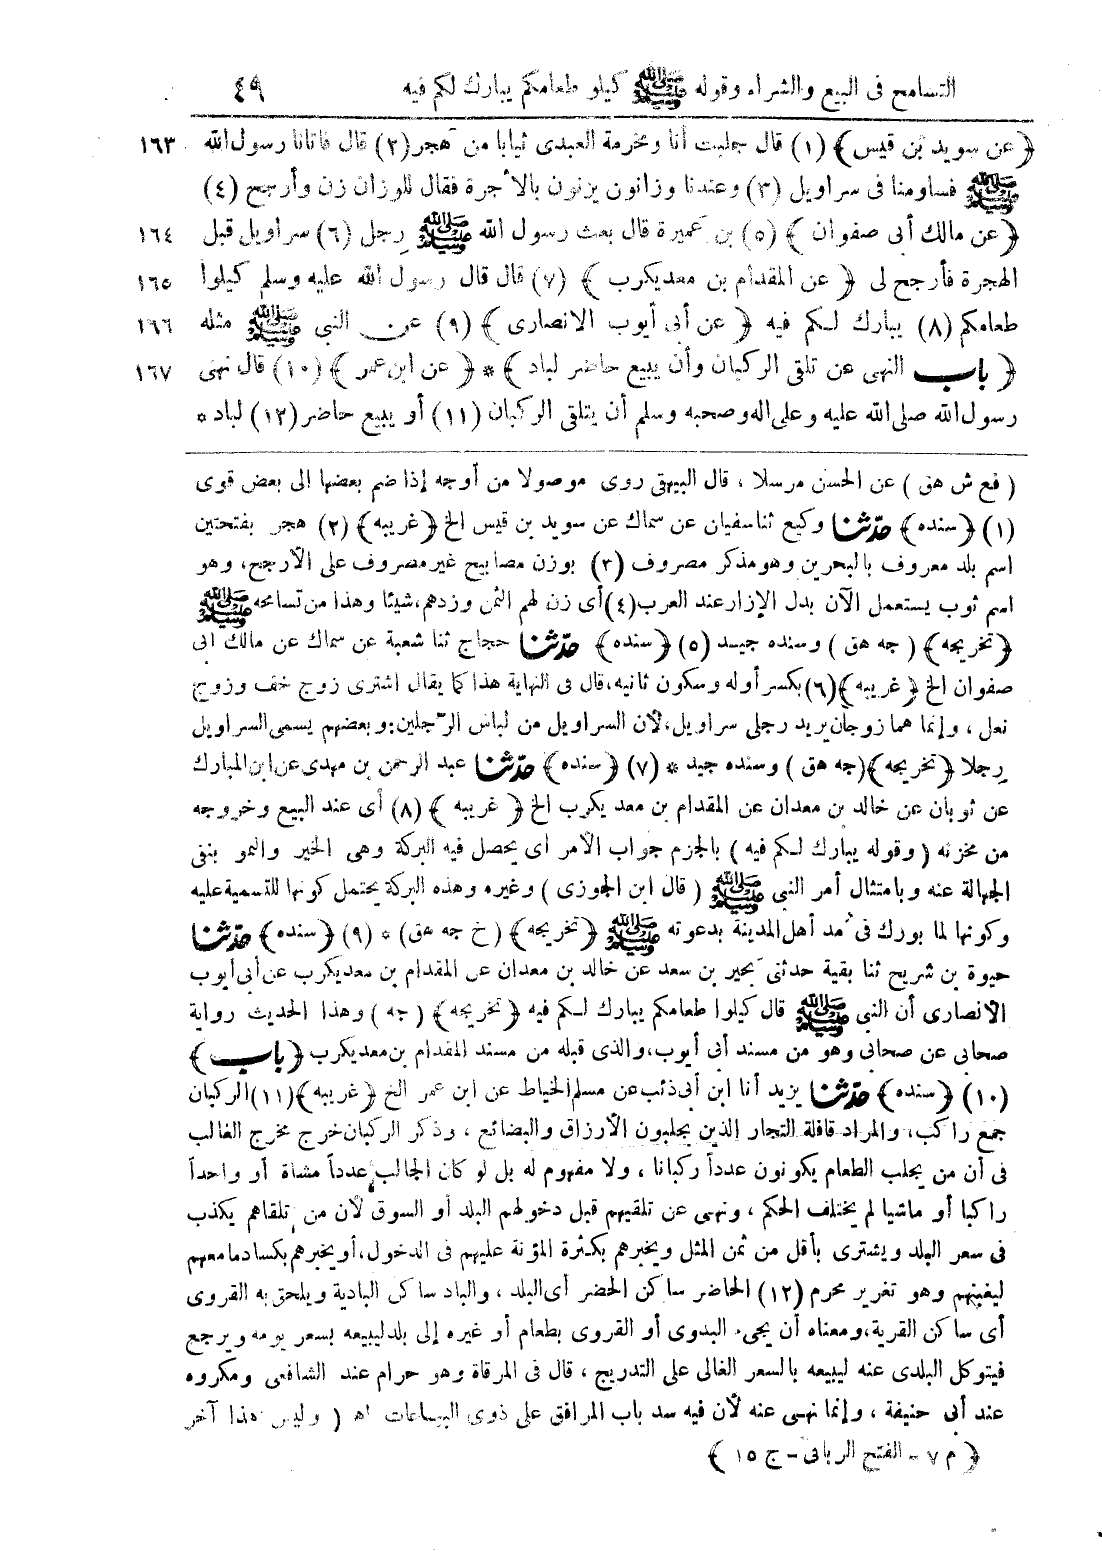 التسامح فى البيع والشراء وقوله ﷺ كيلو طعامكم يبارك لكم فيه ٤٩
﴿ عن سويد بن قيس ﴾ (١) قال جلبت أنا ومخرمة العبدى ثيابا من هجر (٢) قال فاتانا رسول الله ١٦٣
ﷺ فساومنا فى سراويل (٣) وعندنا وزانون يزنون بالأجرة فقال للوزان زن وأرجح (٤)
﴿ عن مالك أبى صفوان ﴾ (٥) بن عميرة قال بعت رسول الله ﷺ رجل (٦) سراويل قبل ١٦٤
الهجرة فأرجح لى ﴿ عن المقدام بن معديكرب ﴾ (٧) قال قال رسول الله عليه وسلم كيلوا ١٦٥
طعامكم (٨) يبارك لكم فيه ﴿ عن أبى أيوب الانصارى ﴾ (٩) عن النبي ﷺ مثله ١٦٦
﴿ باب النهى عن تلقى الركبان وأن يبيع حاضر لباد ﴾ * ﴿ عن ابن عمر ﴾ (١٠) قال نهى ١٦٧
رسول الله صلى الله عليه وعلى اله وصحبه وسلم أن يتلقى الركبان (١١) أو يبيع حاضر (١٢) لباد *
( فع ش هق ) عن الحسن مرسلا ، قال البيهقى روى موصولا من أوجه إذا ضم بعضها الى بعض قوى
(١) ﴿ سنده ﴾ حدثنا وكيع ثنا سفيان عن سماك عن سويد بن قيس الخ ﴿ غريبه ﴾ (٢) هجر بفتحتين
اسم بلد معروف بالبحرين وهو مذكر مصروف (٣) بوزن مصابيح غير مصروف على الأرجح، وهو
اسم ثوب يستعمل الآن بدل الإزار عند العرب (٤) أى زن لهم الثمن وزدهم، شيئا وهذا من تسامحه ﷺ
﴿ تخريجه ﴾ ( جه هق ) وسنده جيد (٥) ﴿ سنده ﴾ حدثنا حجاج ثنا شعبة عن سماك عن مالك ابى
صفوان الخ ﴿ غريبه ﴾ (٦) بكسر أوله وسكون ثانيه، قال فى النهاية هذا كما يقال اشترى زوج خف وزوج
نعل ، وإنما هما زوجان يريد رجلى سراويل، لأن السراويل من لباس الرّجلين: وبعضهم يسمى السراويل
رجلا ﴿ تخريجه ﴾ (جه هق ) وسنده جيد * (٧) ﴿ سنده ﴾ حدثنا عبد الرحمن بن مهدى عن ابن المبارك
عن ثوبان عن خالد بن معدان عن المقدام بن معد يكرب الخ ﴿ غريبه ﴾ (٨) أى عند البيع وخروجه
من مخزنه ( وقوله يبارك لكم فيه ) بالجزم جواب الأمر اى يحصل فيه البركة وهى الخير والنمو بنفى
الجهالة عنه وبامتثال أمر النبي ﷺ ( قال ابن الجوزى ) وغيره وهذه البركة يحتمل كونها للتسمية عليه
وكونها لما بورك فى مد أهل المدينة بدعوته ﷺ ﴿ تخريجه ﴾ ( خ جه هق ) * (٩) ﴿ سنده ﴾ حدثنا
حيوة بن شريح ثنا بقية حدثنى بحير بن سعد عن خالد بن معدان عن المقدام بن معديكرب عن أبى أيوب
الانصارى أن النبي ﷺ قال كيلوا طعامكم يبارك لكم فيه ﴿ تخريجه ﴾ ( جه ) وهذا الحديث رواية
صحابى عن صحابى وهو من مسند أبى أيوب، والذى قبله من مسند المقدام بن معديكرب ﴿ باب ﴾
(١٠) ﴿ سنده ﴾ حدثنا يزيد أنا ابن أبى ذئب عن مسلم الخياط عن ابن عمر الخ ﴿ غريبه ﴾ (١١) الركبان
جمع راكب، والمراد قافلة التجار الذين يجلبون الأرزاق والبضائع ، وذكر الركبان خرج مخرج الغالب
فى أن من يجلب الطعام يكونون عدداً ركبانا ، ولا مفهوم له بل لو كان الجالب عدداً مشاة أو واحداً
راكبا أو ماشيا لم يختلف الحكم ، ونهى عن تلقيهم قبل دخولهم البلد أو السوق لأن من تلقاهم يكذب
فى سعر البلد ويشترى بأقل من ثمن المثل ويخبرهم بكثرة المؤنة عليهم فى الدخول، أو يخبرهم بكساد ما معهم
ليغبنهم وهو تغرير محرم (١٢) الحاضر ساكن الحضر أى البلد ، والباد ساكن البادية ويلحق به القروى
أى ساكن القرية، ومعناه أن يجىء البدوى أو القروى بطعام أو غيره إلى بلد ليبيعه بسعر يومه ويرجع
فيتوكل البلدى عنه ليبيعه بالسعر الغالى على التدريج ، قال فى المرقاة وهو حرام عند الشافعى ومكروه
عند أبى حنيفة ، وإنما نهى عنه لأن فيه سد باب المرافق على ذوى البياعات اه ( وليس هذا آخر
﴿ م ٧ - الفتح الربانى - ج ١٥ ﴾